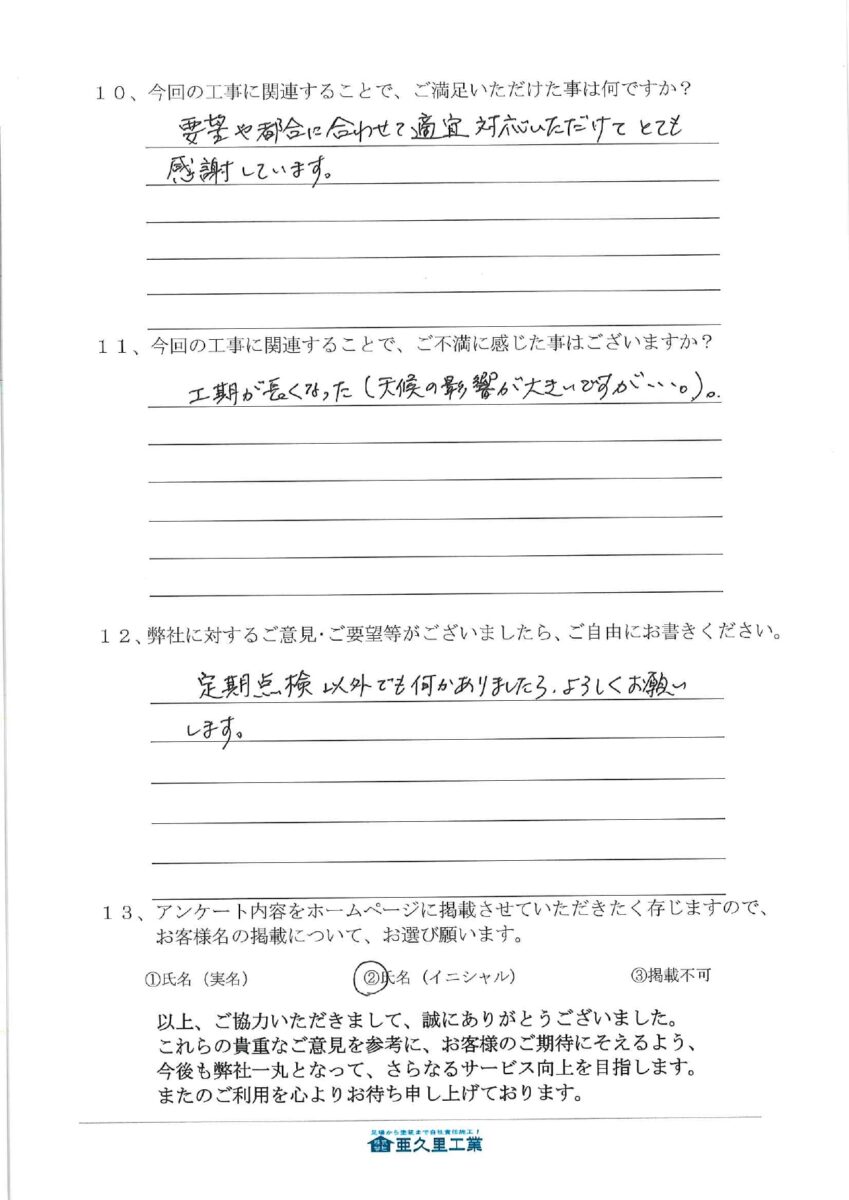 １０、今回の工事に関連することで、ご満足いただけた事は何ですか？
要望や都合に合わせて適宜対応いただけてとても
感謝しています。
１１、今回の工事に関連することで、ご不満に感じた事はございますか？
工期が長くなった（天候の影響が大きいですが・・・。）。
１２、弊社に対するご意見・ご要望等がございましたら、ご自由にお書きください。
定期点検以外でも何かありましたら、よろしくお願い
します。
１３、アンケート内容をホームページに掲載させていただきたく存じますので、
お客様名の掲載について、お選び願います。
①氏名（実名） ②氏名（イニシャル） ③掲載不可
以上、ご協力いただきまして、誠にありがとうございました。
これらの貴重なご意見を参考に、お客様のご期待にそえるよう、
今後も弊社一丸となって、さらなるサービス向上を目指します。
またのご利用を心よりお待ち申し上げております。
足場から塗装まで自社責任施工！
株式会社 亜久里工業